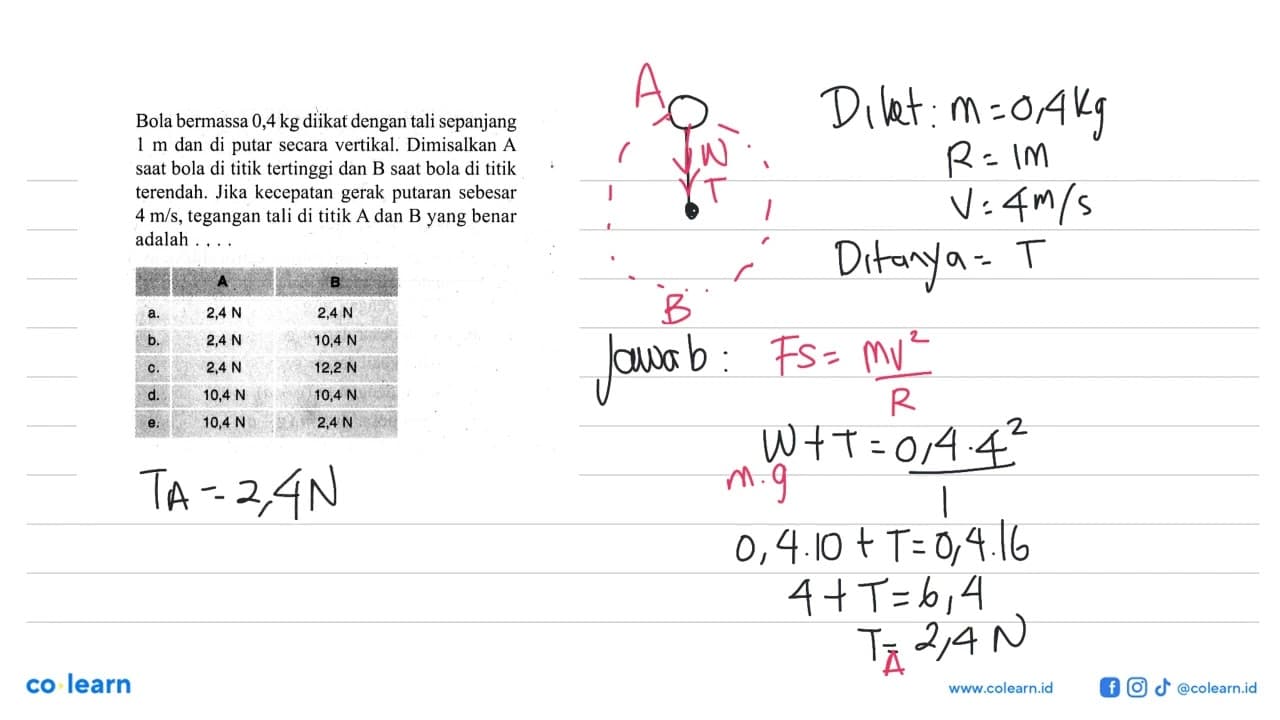 Bola bermassa 0,4 kg diikat dengan tali sepanjang
1 m dan di putar secara vertikal. Dimisalkan A
saat bola di titik tertinggi dan B saat bola di titik
terendah. Jika kecepatan gerak putaran sebesar
4 m/s, tegangan tali di titik A dan B yang benar
adalah . . . .
A B
a. 2,4 N 2,4 N
b. 2,4 N 10,4 N
c. 2,4 N 12,2 N
d. 10,4 N 10,4 N
e. 10,4 N 2,4 N
TA = 2,4 N
A
W
T
B
Diket : m = 0,4 kg
R = 1 M
V = 4 m/s
Ditanya = T
Jawab : Fs = mv²
R
W + T = 0,4 . 4²
m.g 1
0,4.10 + T = 0,4.16
4 + T = 6,4
T = 2,4 N
A
co learn
www.colearn.id @colearn.id